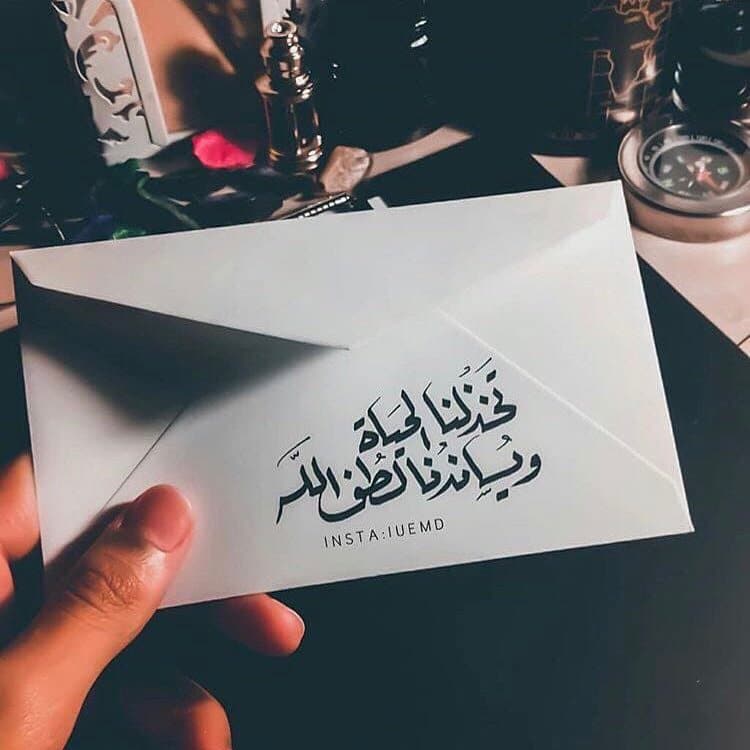 تَخذُلنا الحَياة
ويُسانِدُنا لُطف الله
INSTA:IUEMD